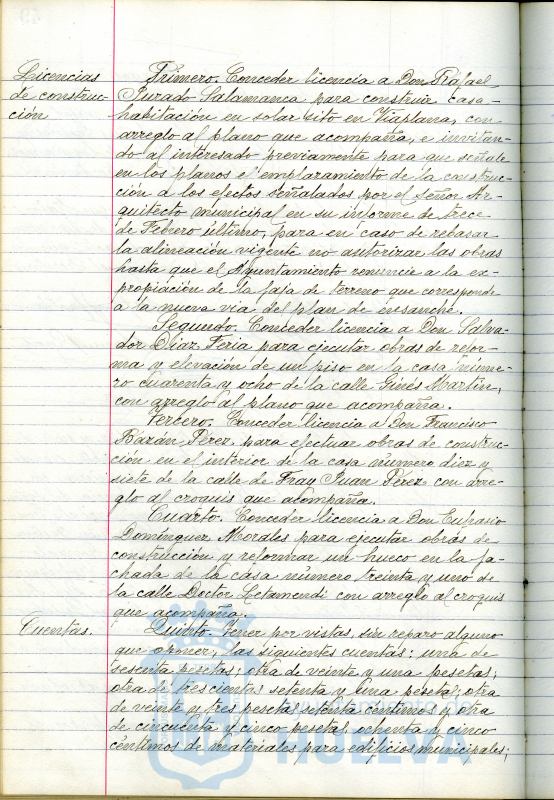 Licencias
de construc-
ción
Primero. Conceder licencia a Don Rafael
Jurado Salamanca para construir casa-
habitación en solar sito en Viaplana, con
arreglo al plano que acompaña, e invitan-
do al interesado previamente para que señale
en los planos el emplazamiento de la construc-
ción a los efectos señalados por el señor Ar-
quitecto municipal en su informe de trece
de Febrero último, para en caso de rebasar
la alineación vigente no autorizar las obras
hasta que el Ayuntamiento renuncie a la ex-
propiación de la faja de terreno que corresponde
a la nueva via del plan de ensanche.
Segundo. Conceder licencia a Don Salva-
dor Díaz Feria para ejecutar obras de refor-
ma y elevación de un piso en la casa núme-
ro cuarenta y ocho de la calle Ginés Martín,
con arreglo al plano que acompaña.
Tercero. Conceder licencia a Don Francisco
Bazán Pérez para efectuar obras de construc-
ción en el interior de la casa número diez y
siete de la calle de Fray Juan Pérez con arre-
glo al croquis que acompaña.
Cuarto. Conceder licencia a Don Eufrasio
Domínguez Morales para ejecutar obras de
construcción y reformar un hueco en la fa-
chada de la casa número treinta y uno de
la calle Doctor Letamendi con arreglo al croquis
que acompaña.
Cuentas.
Quinto. Tener por vistas, sin reparo alguno
que oponer, las siguientes cuentas: una de
sesenta pesetas; otra de veinte y una pesetas;
otra de trescientas setenta y una pesetas; otra
de veinte y tres pesetas setenta céntimos y otra
de cincuenta y cinco pesetas ochenta y cinco
céntimos de materiales para edificios municipales;
HUELVA